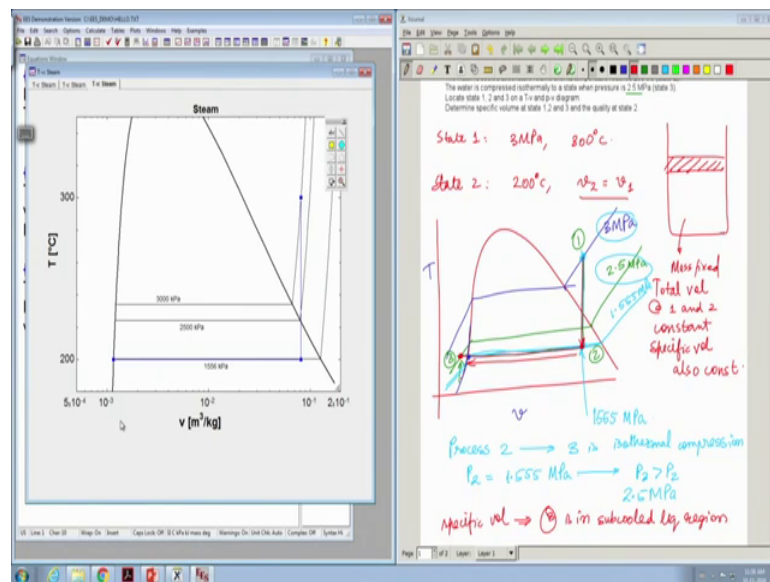 EES Demonstration Version C:\EES_DEMO\HELLO.TXT
File Edit Search Options Calculate Tables Plots Windows Help Examples
Equations Window
T-v Steam
T-v Steam T-v Steam T-v Steam
Steam
300
200
T [°C]
3000 kPa
2500 kPa
1556 kPa
5x10-4 10-3 10-2 10-1 2x10-1
v [m3/kg]
Line: 1 Char: 10 Wrap: On Insert Caps Lock: Off SI C kPa kJ mass deg Warnings: On Unit Chk: Auto Complex: Off
Journal
File Edit View Page Tools Options Help
The water is compressed isothermally to a state when pressure is 2.5 MPa (state 3).
Locate state 1, 2 and 3 on a T-v and p-v diagram.
Determine specific volume at state 1,2 and 3 and the quality at state 2.
State 1: 3MPa, 300°C.
State 2: 200°C, v2 = v1
T
3MPa
2.5 MPa
1.555 MPa
1
2
3
v
1555 MPa
Mass fixed
Total vol
@ 1 and 2
constant
specific vol
also const.
Process 2 → 3 is isothermal compression
P2 = 1.555 MPa → P2 > P2
2.5MPa
specific vol → 3 is in subcooled liq region
Page 1 of 2 Layer: Layer 1